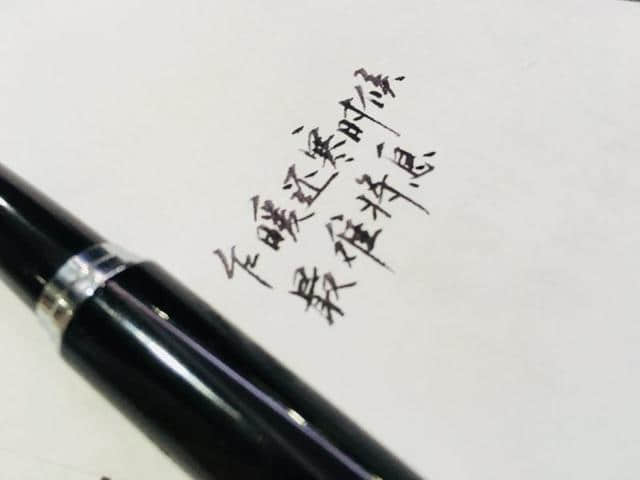 乍暖还寒时候
最难将息